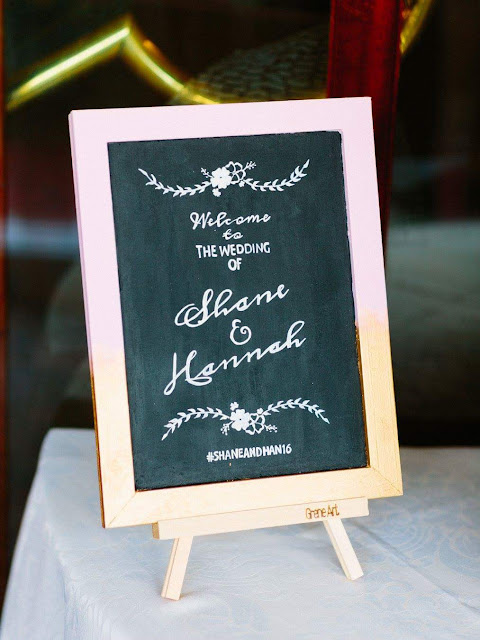 Welcome
to
THE WEDDING
OF
Shane
&
Hannah
#SHANEANDHAN16
Grene Art